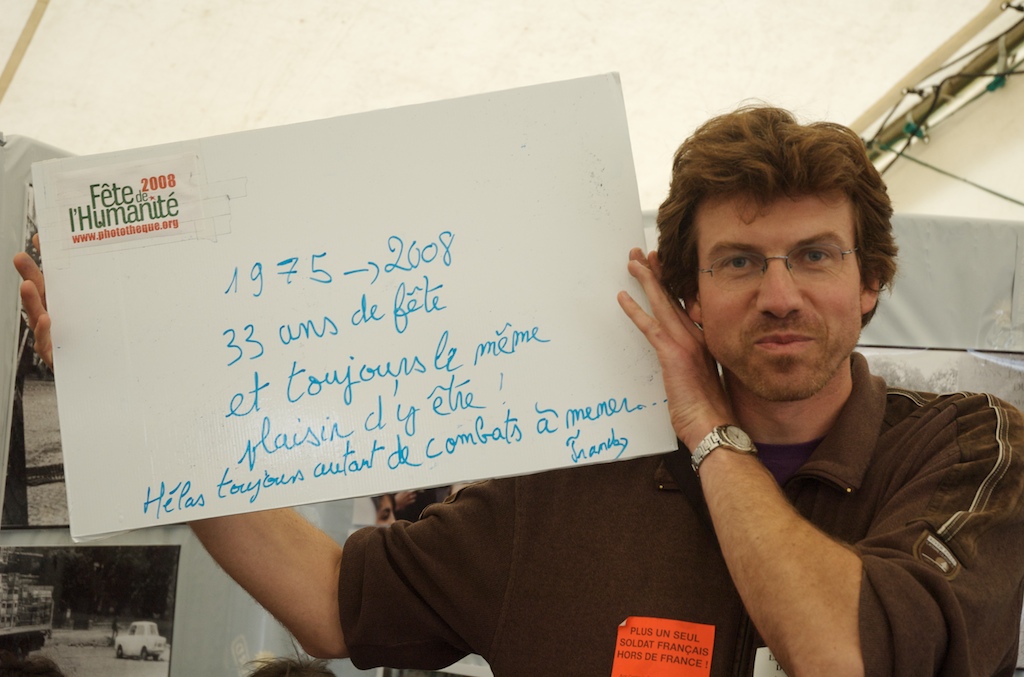 Fête de 2008
l'Humanité
www.phototheque.org
1975 → 2008
33 ans de fête
et toujours le même
plaisir d'y être !
Hélas toujours autant de combats à mener...
PLUS UN SEUL
SOLDAT FRANÇAIS
HORS DE FRANCE !